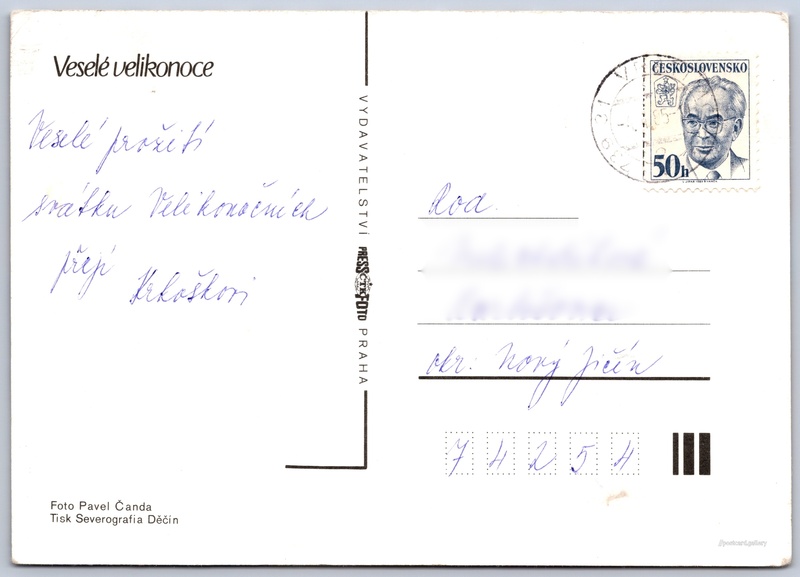 Veselé velikonoce
Veselé prožití
svátku Velikonočních
přejí
Krkoškovi
VYDAVATELSTVÍ PRESSFOTO PRAHA
ČTK
ČESKOSLOVENSKO
50h
Rod.
okr. Nový Jičín
74254
Foto Pavel Čanda
Tisk Severografia Děčín